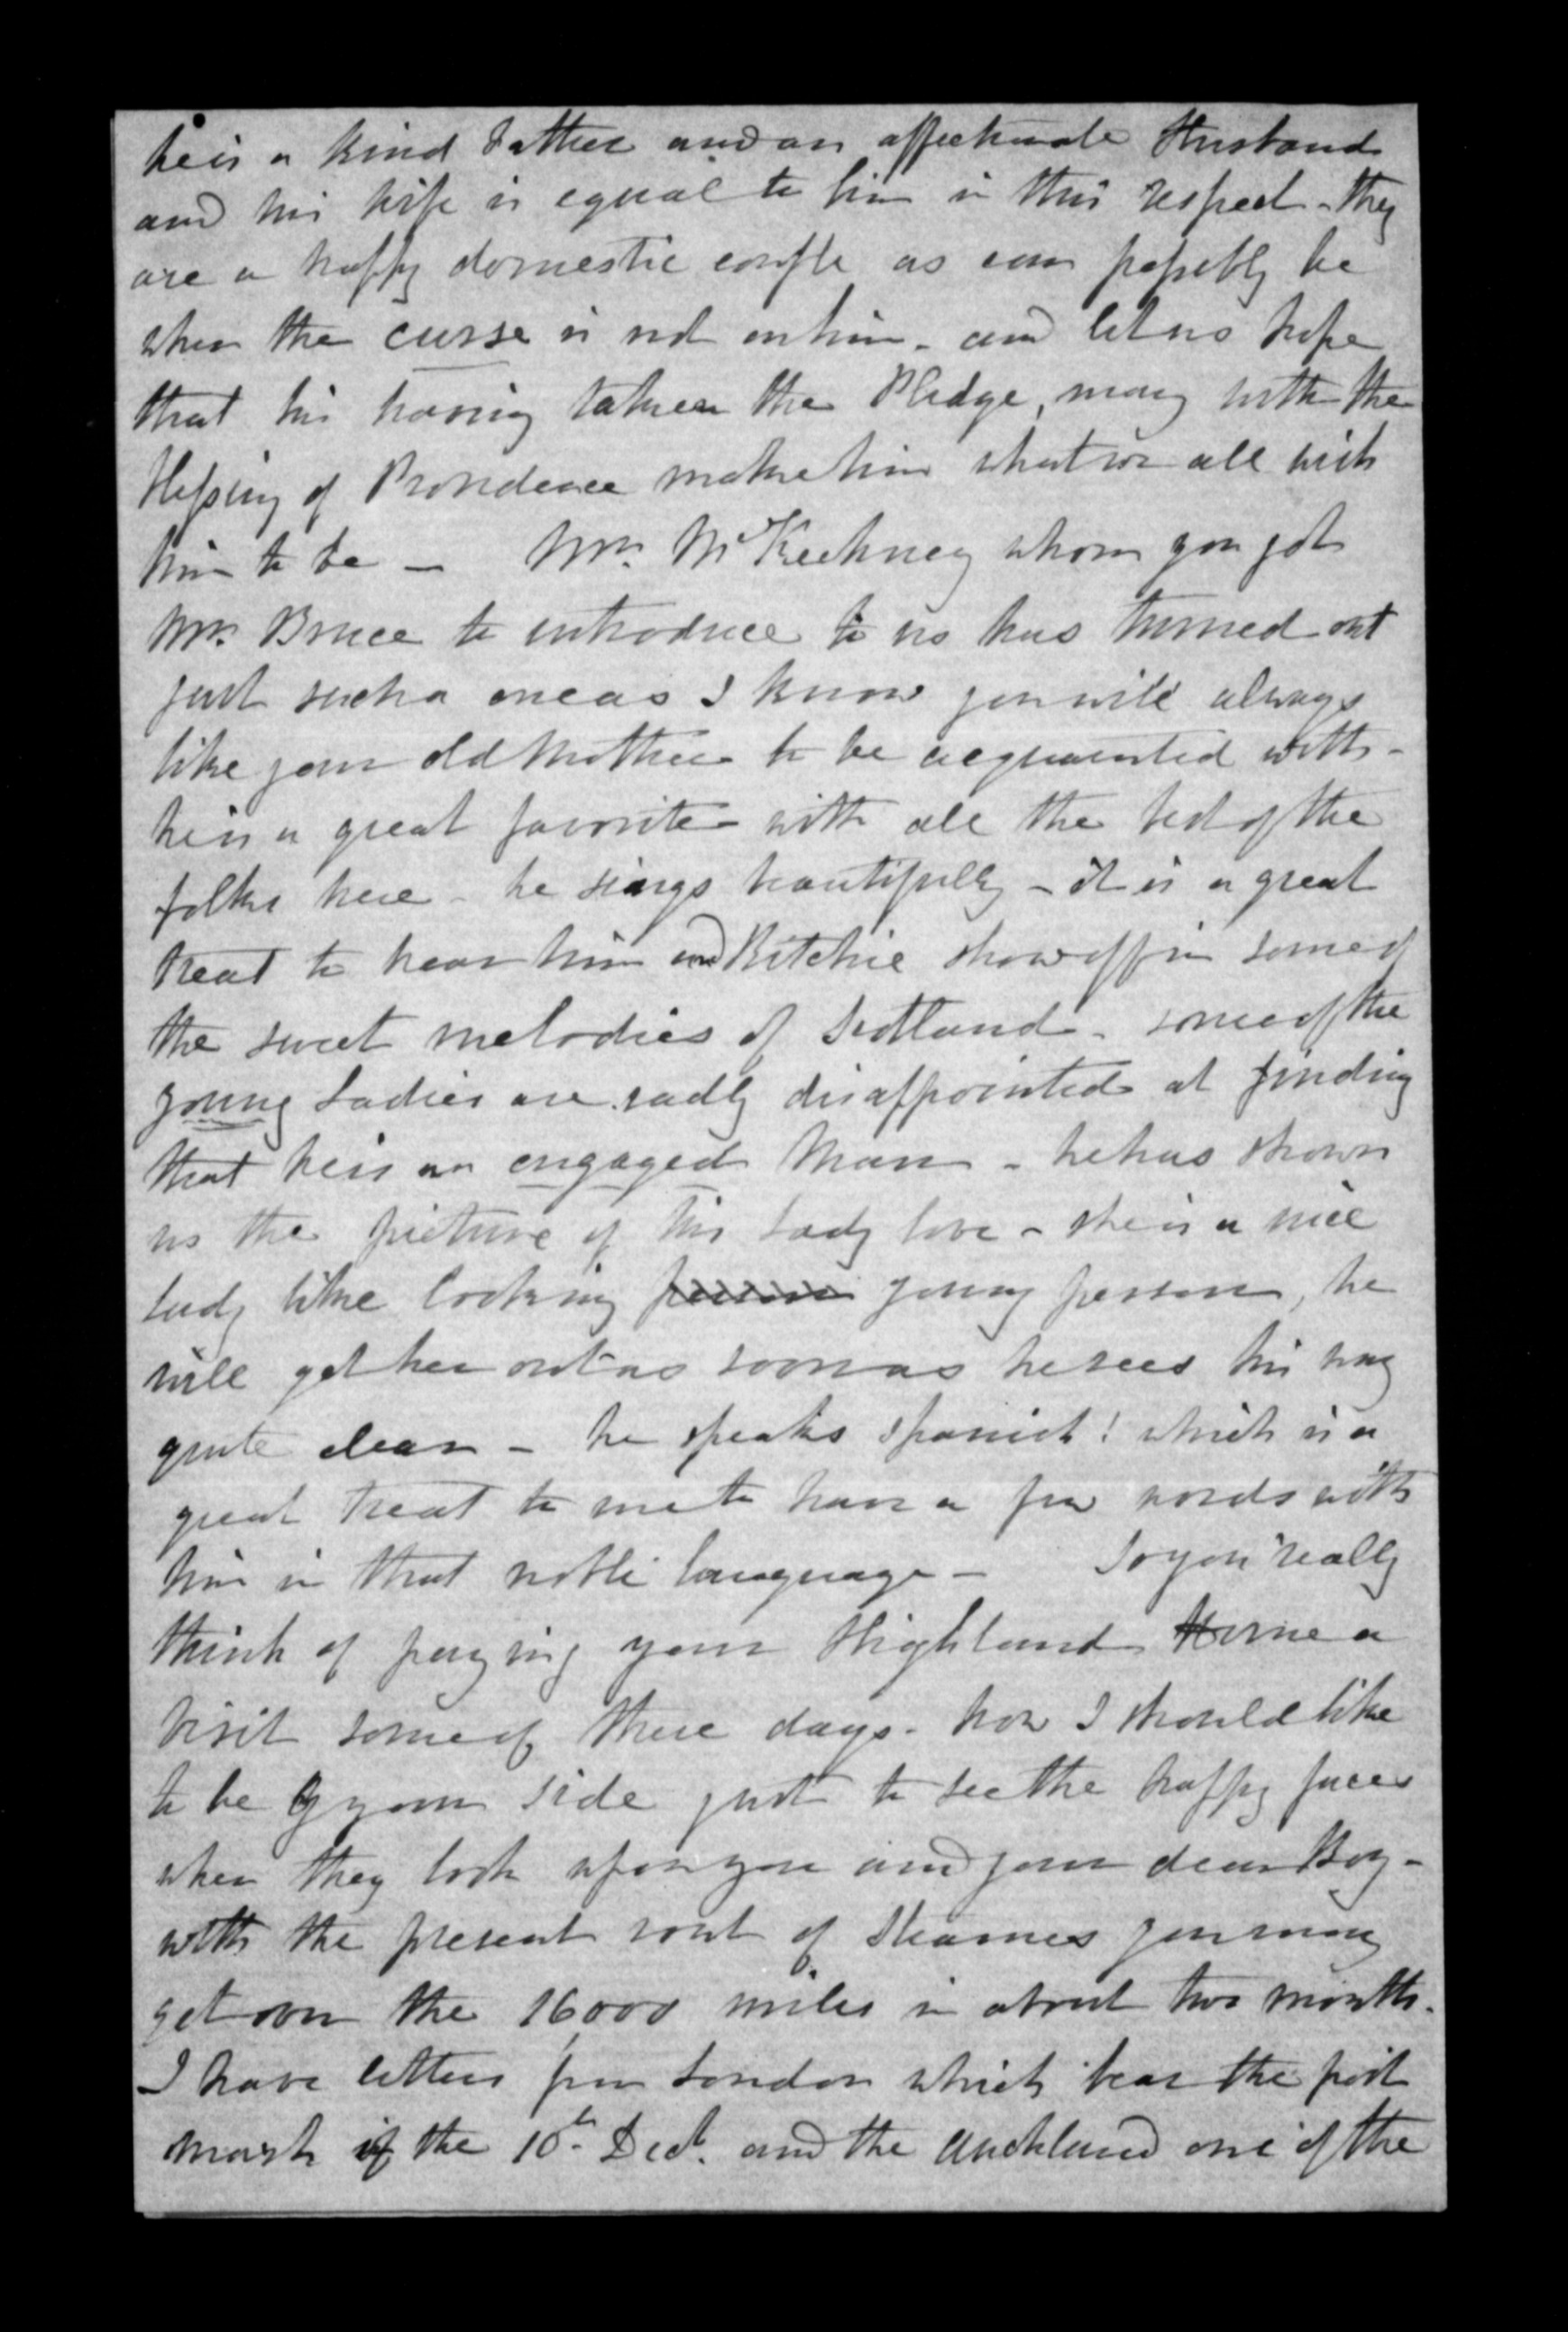 he is a kind Father and an affectionate Husband
and his wife is equal to him in this respect - they
are a happy domestic couple as can possibly be
when the curse is not on him - and let us hope
that his having taken the Pledge, may with the
blessing of Providence make him what we all wish
him to be - Mr. McKechney whom you got
Mr. Bruce to introduce to us has turned out
just such a one as I know you will always
like your old Mother to be acquainted with -
he is a great favorite with all the best of the
folks here - he sings beautifully - it is a great
treat to hear him and Ritchie show off in some of
the sweet melodies of Scotland - some of the
young Ladies are sadly disappointed at finding
that he is an engaged Man - he has shown
us the picture of his Lady love - she is a nice
lady like looking person young person, he
will get her out as soon as he sees his way
quite clear - he speaks Spanish! which is a
great treat to me to have a few words with
him in that noble language - So you really
think of paying your Highland Home a
visit some of these days - how I should like
to be by your side just to see the happy faces
when they look upon you and your dear Boy -
with the present rout of Steamers you may
get over the 16,000 miles in about two months.
I have letters from London which bear the post
mark of the 10th Decr. and the Auckland one of the